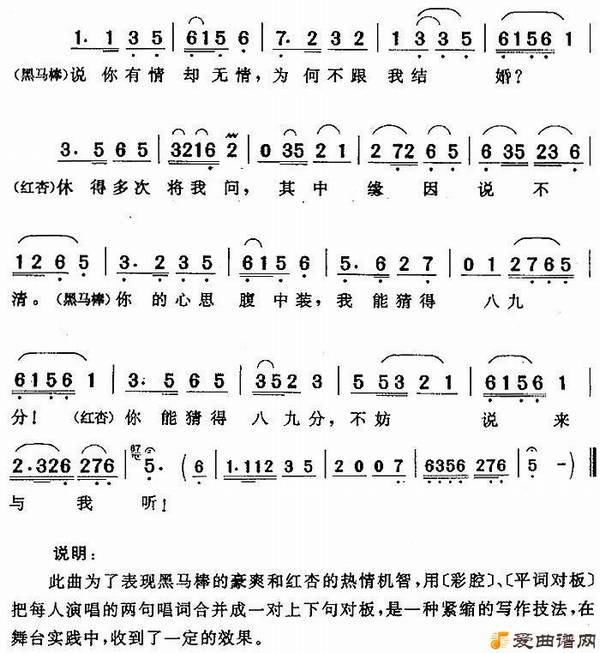 1. 1 3 5 | 6156 | 7. 2 3 2 | 1 3 3 5 | 6156 1
(黑马棒)说 你 有 情 却 无 情，为 何 不 跟 我 结 婚？
3. 5 6 5 | 3216 2 | 0 35 2 1 | 2 72 6 5 | 6 35 23 6
(红杏)休 得 多 次 将 我 问，其 中 缘 因 说 不
1 2 6 5 | 3. 2 3 5 | 6 1 5 6 | 5. 6 2 7 | 0 1 2765
清。(黑马棒)你 的 心 思 腹 中 装，我 能 猜 得 八 九
6156 1 | 3. 5 6 5 | 352 3 | 5 53 2 1 | 6156 1
分！(红杏)你 能 猜 得 八 九 分，不 妨 说 来
2.326 276 | 5. (6 | 1.112 3 5 | 2 0 0 7 | 6356 276 | 5 -)
与 我 听！
说明：
此曲为了表现黑马棒的豪爽和红杏的热情机智，用〔彩腔〕、〔平词对板〕
把每人演唱的两句唱词合并成一对上下句对板，是一种紧缩的写作技法，在
舞台实践中，收到了一定的效果。
爱曲谱网